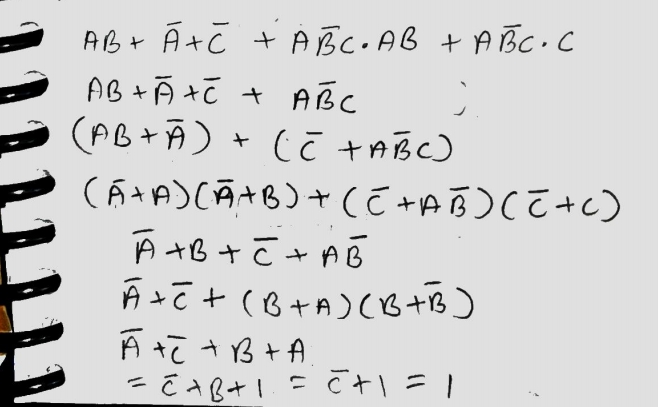 AB + Ā + C̄ + AB̄C·AB + AB̄C·C
AB + Ā + C̄ + AB̄C
(AB + Ā) + (C̄ + AB̄C)
(Ā+A)(Ā+B) + (C̄+AB̄)(C̄+C)
Ā + B + C̄ + AB̄
Ā + C̄ + (B+A)(B+B̄)
Ā + C̄ + B + A
= C̄ + B + 1 = C̄ + 1 = 1